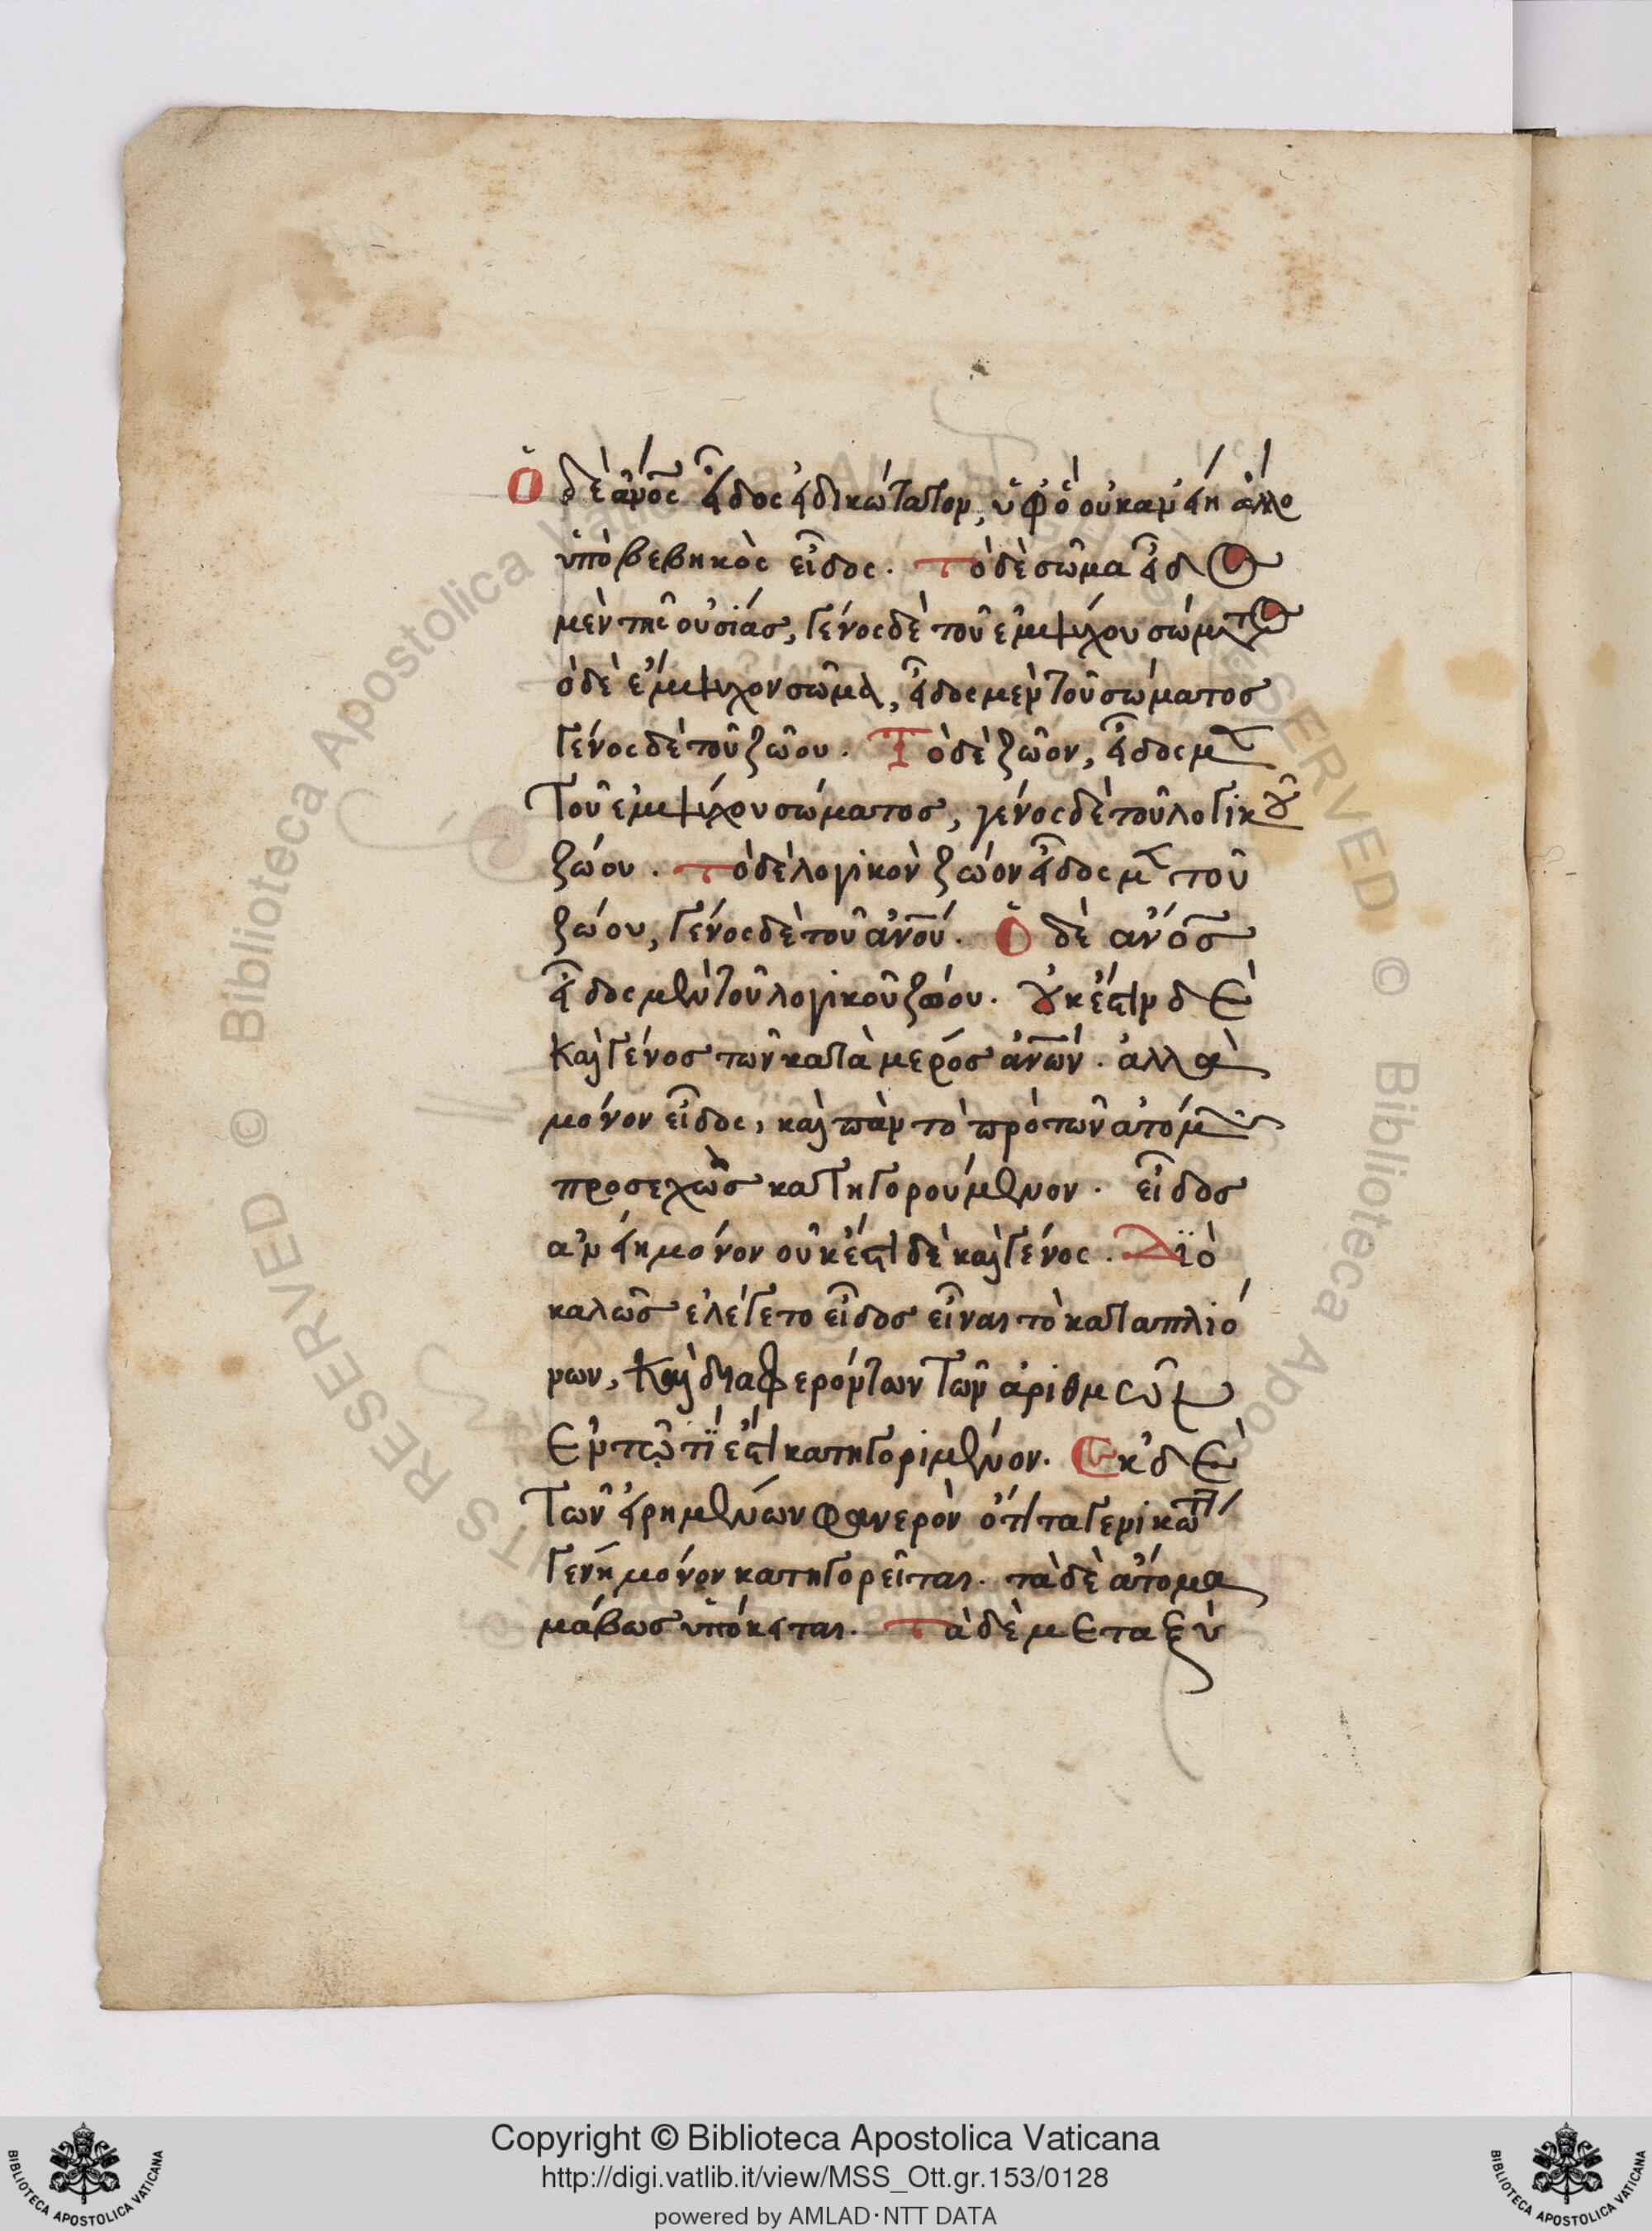 Ὁ δὲ ἀνος εἶδος εἰδικώτατον, ὑφ ὃ οὐκ ἂν εἴη ἄλλο
ὑποβεβηκὸς εἶδος. Τὸ δὲ σῶμα εἶδος
μὲν τῆς οὐσίας, γένος δὲ τοῦ ἐμψύχου σώματος
ὸ δὲ ἔμψυχον σῶμα, εἶδος μὲν τοῦ σώματος
γένος δὲ τοῦ ζώου. Τὸ δὲ ζῶον, εἶδος μὲν
τοῦ ἐμψύχου σώματος, γένος δὲ τοῦ λογικοῦ
ζώου. Τὸ δὲ λογικὸν ζώον εἶδος μὲν τοῦ
ζώου, γένος δὲ τοῦ ἀνου. Ὁ δὲ ανος
εἶδος μὲν τοῦ λογικοῦ ζώου. Οὐκ έστιν δὲ
καὶ γένος τῶν κατὰ μερος ἀνων. ἀλλὰ
μόνον εἶδος, καὶ πὰν τὸ πρὸ τῶν ατόμων
προσεχῶς κατηγορούμενον. εἶδος
αν είη μόνον οὐκ έστι δὲ καὶ γένος. Διὸ
καλῶς ἐλέγετο εἶδος εἶναι τὸ κατα πλιό
νων, καὶ διαφερόντων τῶν ἀριθμῶ
ἐν τῶ τί ἐστι κατηγοριμένον. Εκ δὲ
τῶν εἰρημένων φανερὸν ὅτι τα γενικώτ
γενη μόνον κατηγορεῖται. τὰ δὲ άτομα
μόνως υπόκειται. Τὰ δὲ μεταξὺ
Copyright © Biblioteca Apostolica Vaticana
http://digi.vatlib.it/view/MSS_Ott.gr.153/0128
powered by AMLAD·NTT DATA